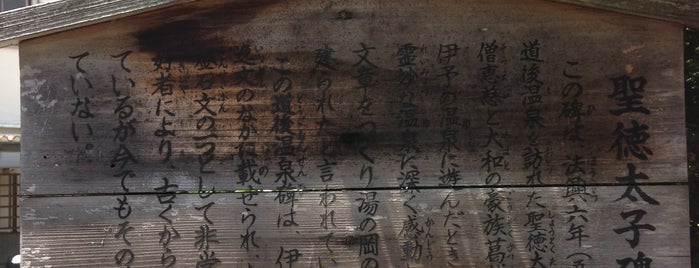 聖徳太子碑
この碑は、法興六年（
道後温泉を訪れた聖徳太
僧恵慈と大和の豪族葛
伊予の温泉に遊んだとき
霊妙な温泉に深く感動
文章をつくり湯の岡の
建られたと言われてい
この道後温泉碑は、伊
逸文のなかに載せられ、
金石文の一つとして非常
好者により、古くから
ているが今でもその
ていない。